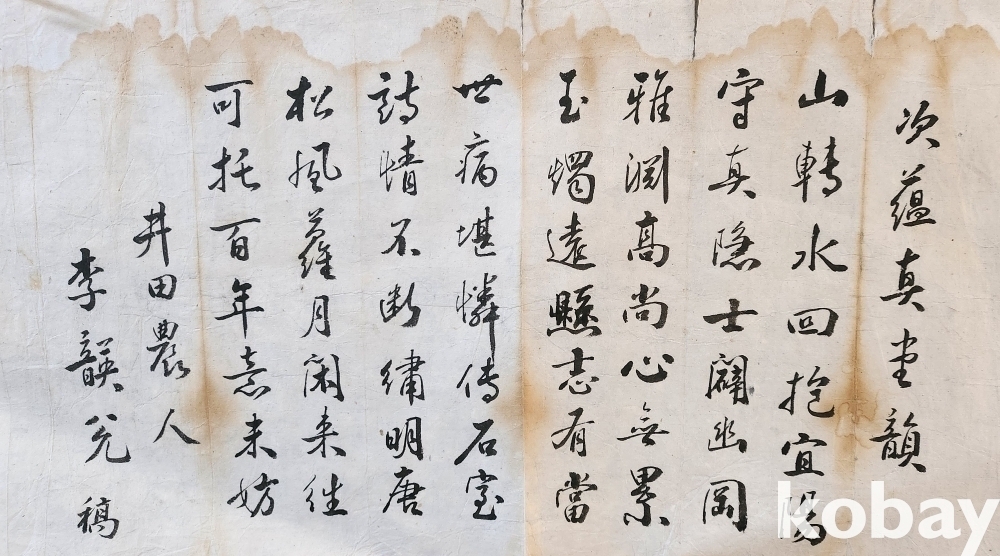 次蘊真堂韻
山轉水回抱宜陽
守真隱士闢幽岡
雅淵高尚心無累
玉燭遠懸志有當
世病堪憐傳石室
詩情不斷繡明唐
松風蘿月閑来往
可托百年意未妨
井田農人
李韺允稿
kobay